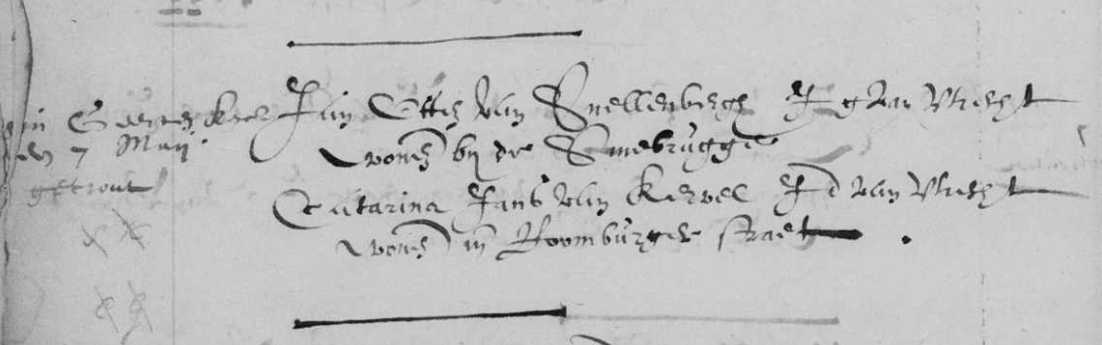 in Geerte kerk
den 7 Maij
getrout
Jan Otten van Snellenbergh J g van Utrecht
wonen by de Smebrugge
Catarina Jans van Kervel J d van Utrecht
wonen in Roomburger straet